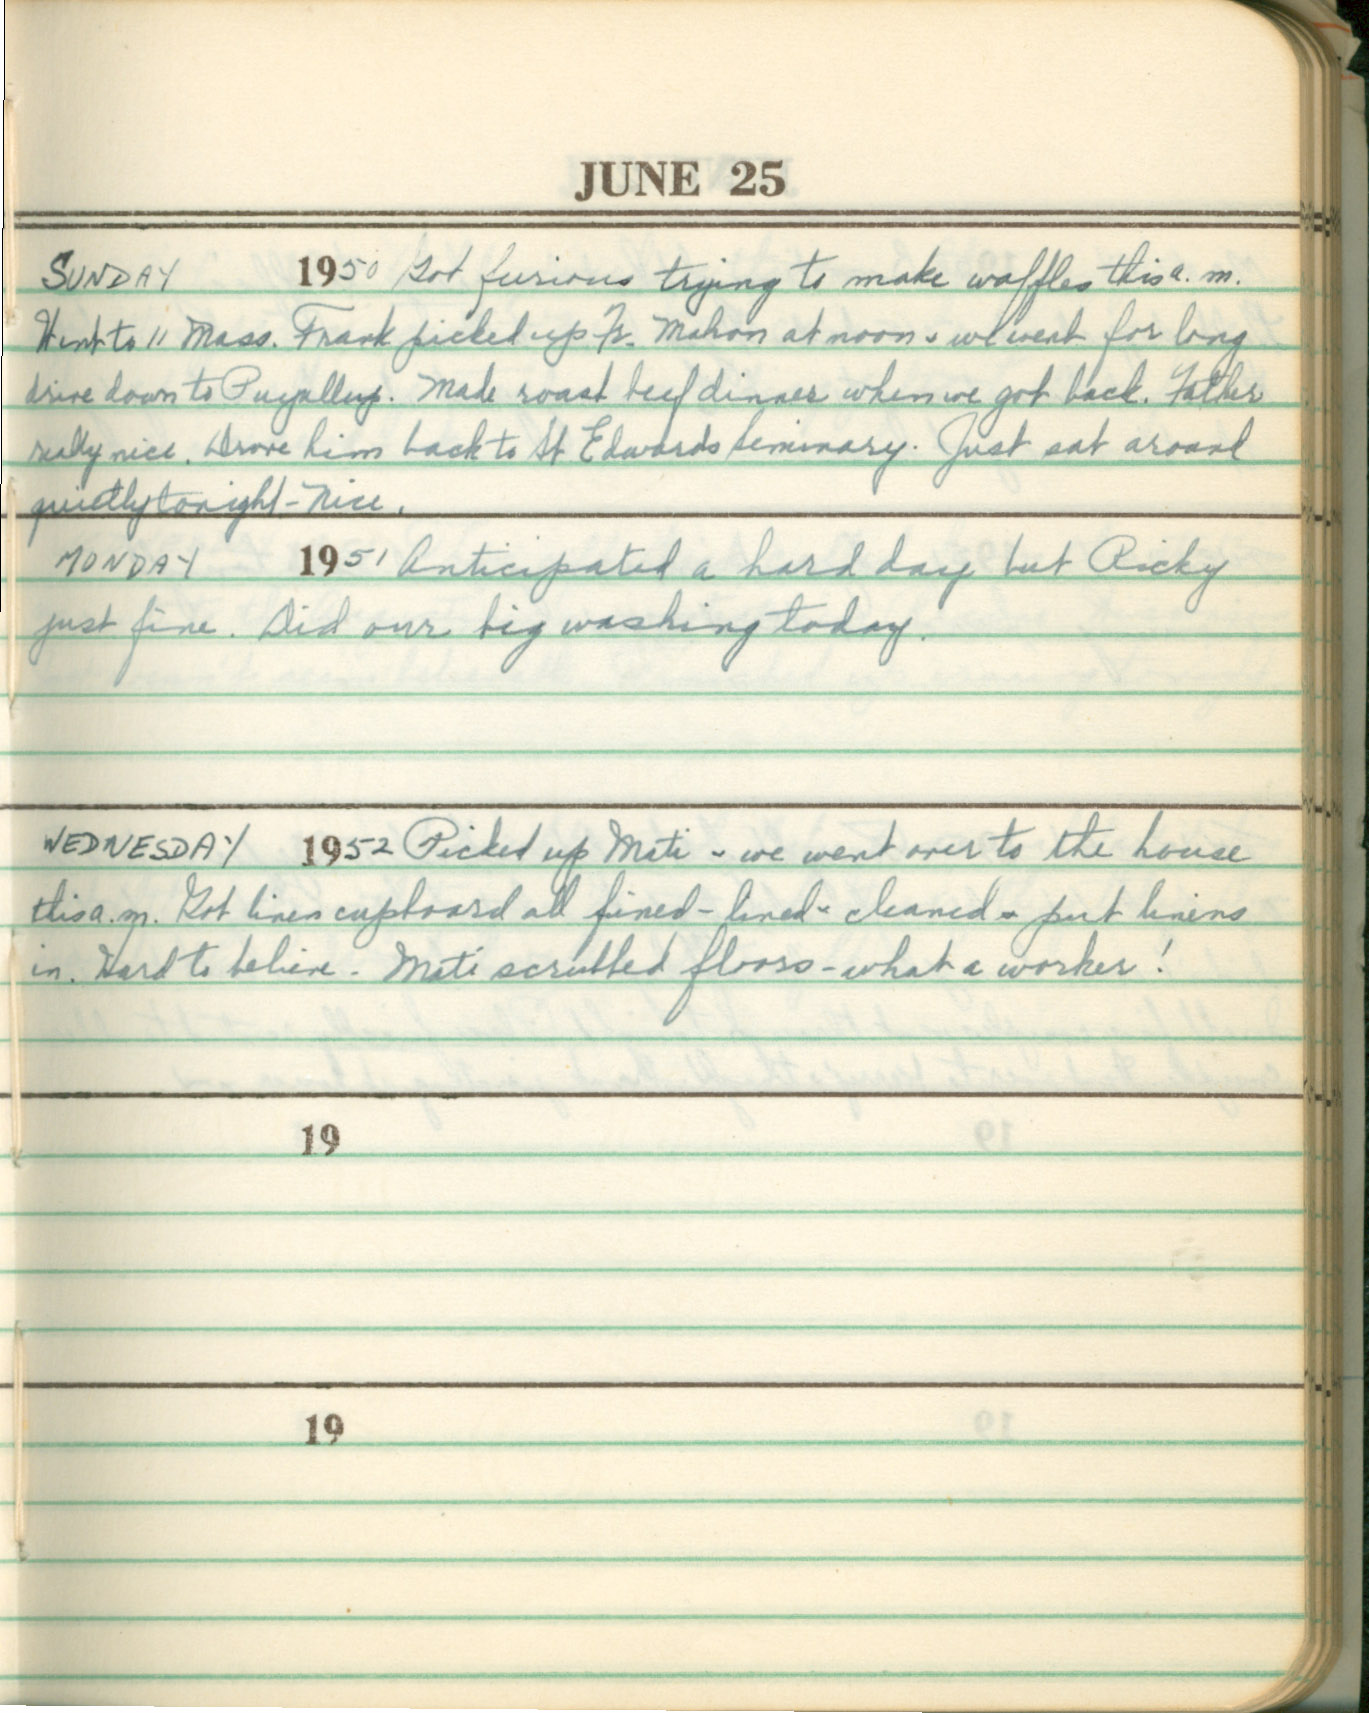 JUNE 25
SUNDAY 1950 Got furious trying to make waffles this a.m.
Went to 11 Mass. Frank picked up Fr. Mahon at noon & we went for long
drive down to Puyallup. Made roast beef dinner when we got back. Father
really nice. Drove him back to St Edwards Seminary. Just sat around
quietly tonight - nice.
MONDAY 1951 Anticipated a hard day but Ricky
just fine. Did our big washing today.
WEDNESDAY 1952 Picked up Mati & we went over to the house
this a.m. Got linen cupboard all fined - lined & cleaned & put linens
in. Hard to believe - Mati scrubbed floors - what a worker!
19
19